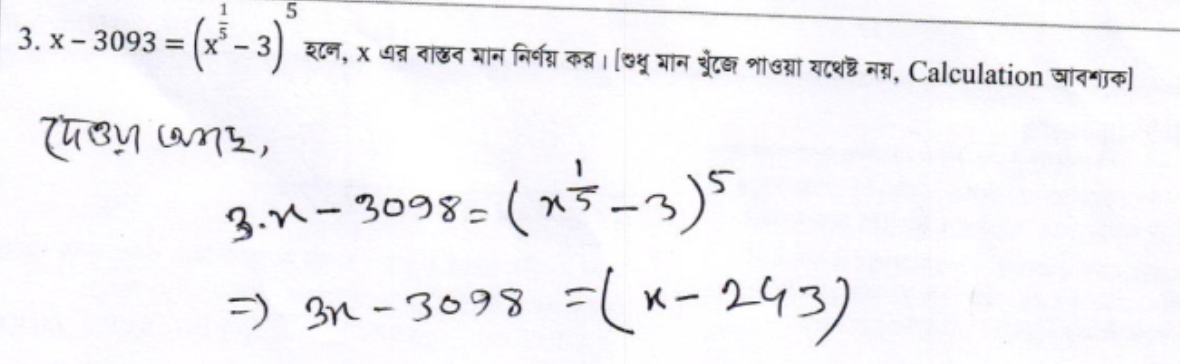 3. x – 3093 = (x^{1/5} – 3)^5 হলে, x এর বাস্তব মান নির্ণয় কর। [শুধু মান খুঁজে পাওয়া যথেষ্ট নয়, Calculation আবশ্যক]
দেওয়া আছে,
3.x – 3098 = (x^{1/5} – 3)^5
=) 3x – 3098 = (x – 243)